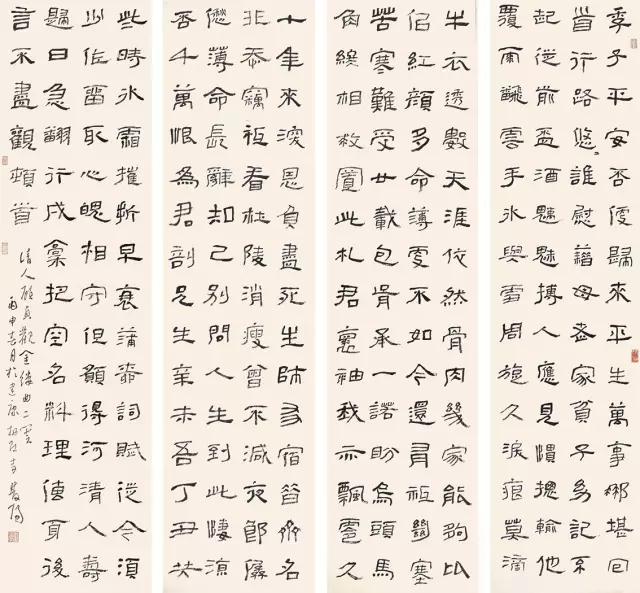 季子平安否便歸來平生萬事那堪回
首行路悠〻誰慰藉母老家貧子幼記不
起從前盃酒魑魅搏人應見慣總輸他
覆雨翻雲手冰與雪周旋久淚痕莫滴
牛衣透數天涯依然骨肉幾家能夠比
佀紅顏多命薄更不如今還有祇絕塞
苦寒難受廿載包胥承一諾盼烏頭馬
角終相救置此札君懷袖我亦飄零久
十年來深恩負盡死生師友宿昔齊名
非忝竊祇看杜陵消瘦曾不減夜郎僝
僽薄命長辭知己別問人生到此淒涼
否千萬恨為君剖兄生辛未吾丁丑共
此時冰霜摧折早衰蒲柳詞賦從今須
少作留取心魂相守但願得河清人壽
歸日急翻行戍稾把空名料理傳身後
言不盡觀頓首
清人顧貞觀金縷曲二首
丙申春月於建康